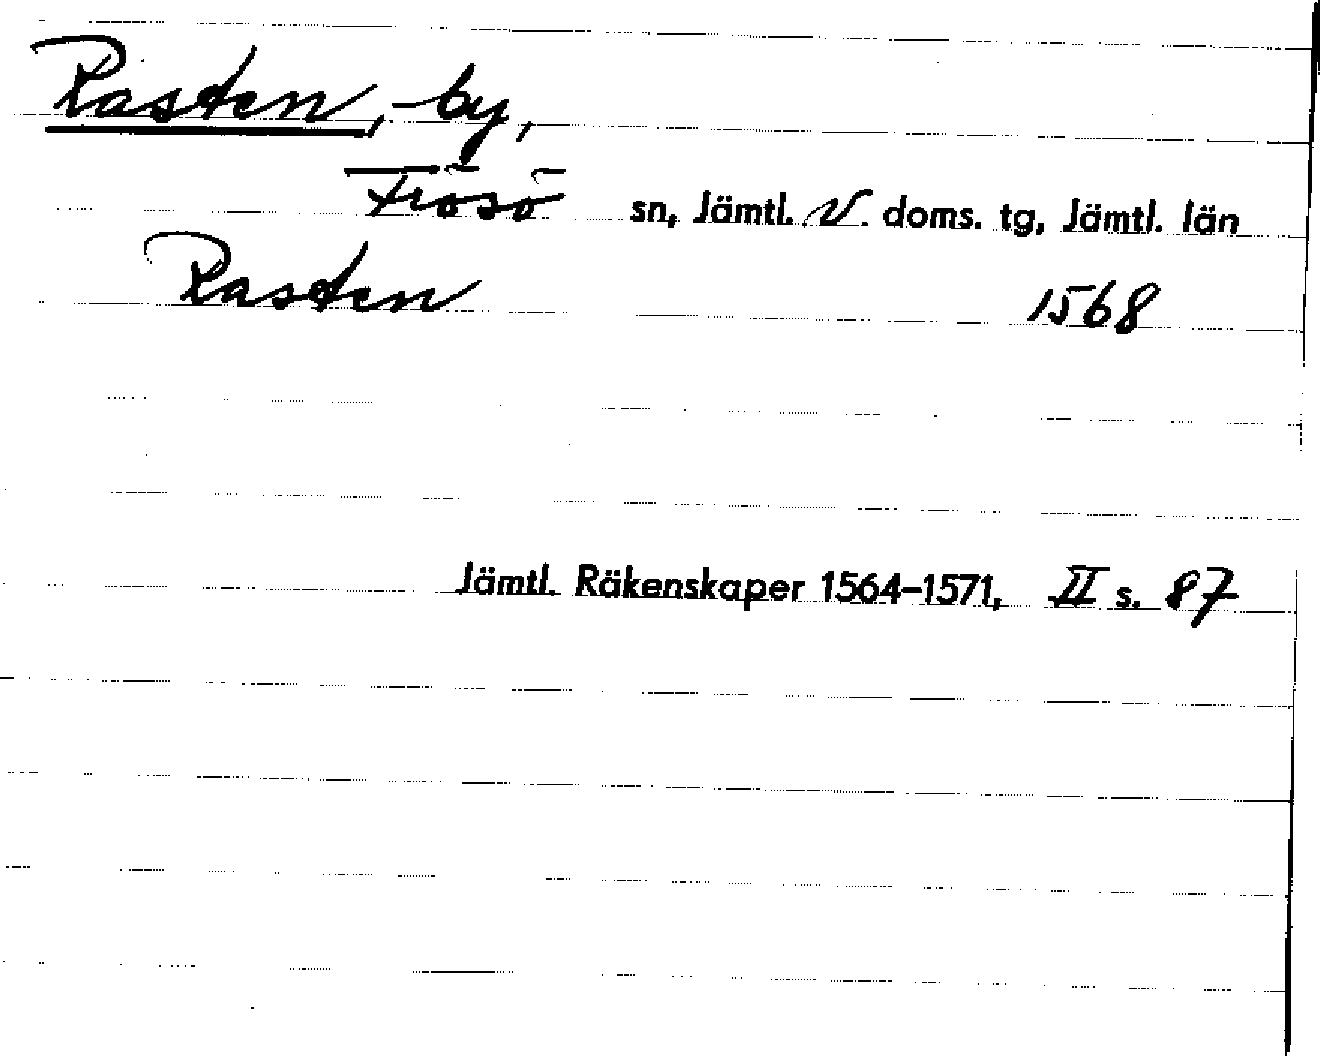 Rasten, by,
Frösö sn, Jämtl. V. doms. tg, Jämtl. län
Rasten 1568
Jämtl. Räkenskaper 1564-1571, II s. 87